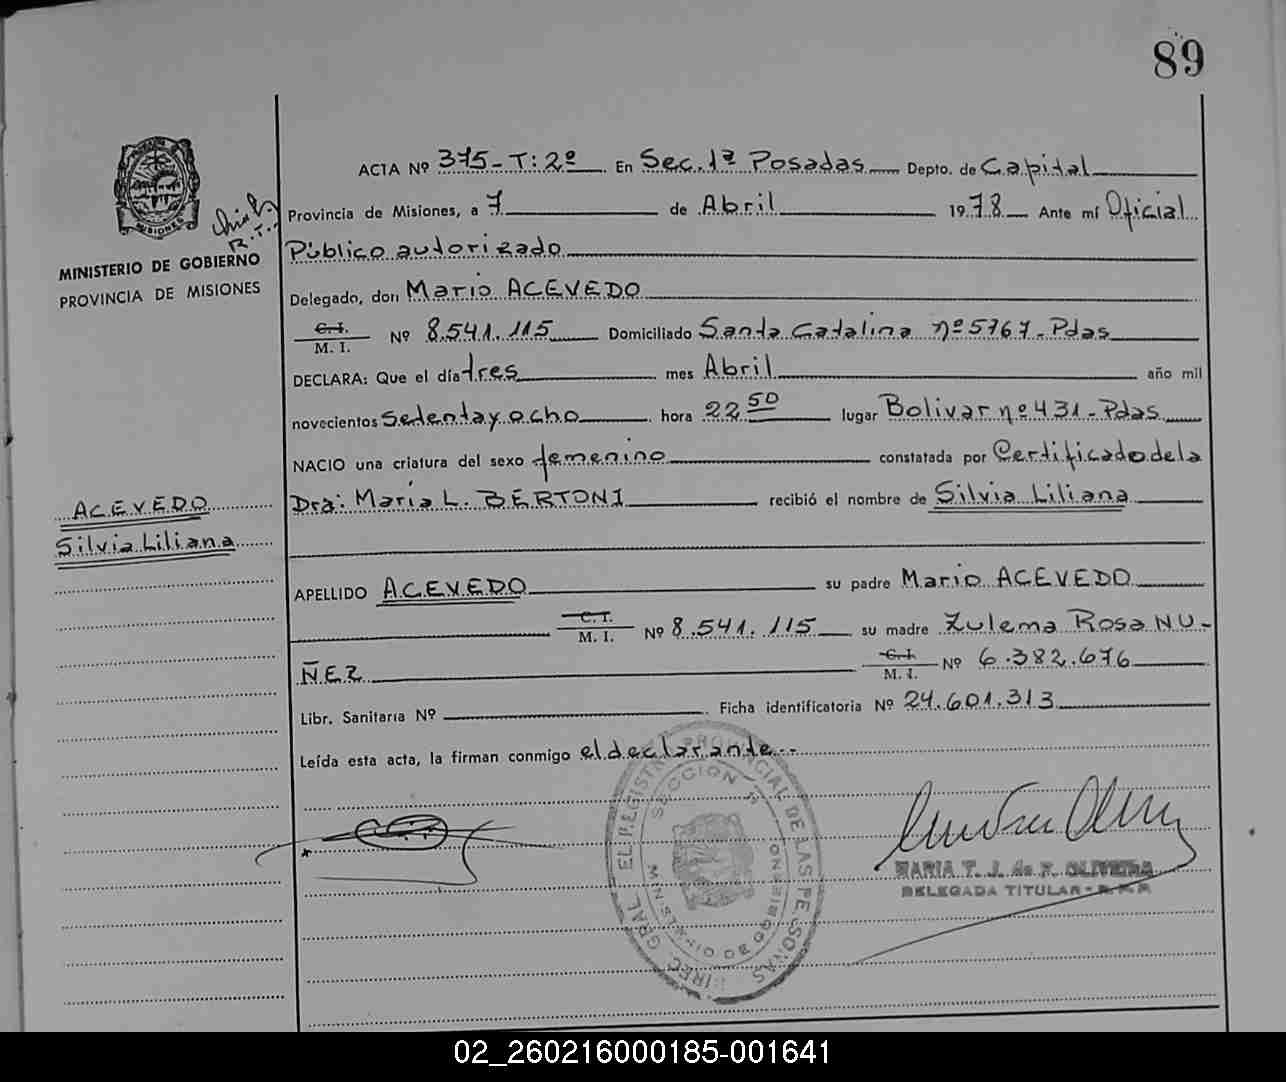 89
ACTA Nº 375-T:2º En Sec. 1ª Posadas Depto. de Capital
Provincia de Misiones, a 7 de Abril 1978 Ante mí Oficial
Público autorizado
Delegado, don Mario ACEVEDO
C.I. M. I. Nº 8.541.115 Domiciliado Santa Catalina nº 5767-Pdas
DECLARA: Que el día tres mes Abril año mil
novecientos Setenta y ocho hora 22 50 lugar Bolivar nº 431-Pdas
NACIO una criatura del sexo femenino constatada por Certificado de la
Dra: María L. BERTONI recibió el nombre de Silvia Liliana
APELLIDO ACEVEDO su padre Mario ACEVEDO
C. I. M. I. Nº 8.541.115 su madre Zulema Rosa NU-
ÑEZ C.I. M. I. Nº 6.382.676
Libr. Sanitaria Nº Ficha identificatoria Nº 24.601.313
Leída esta acta, la firman conmigo el declarante.-
MISIONES
R.T.
MINISTERIO DE GOBIERNO
PROVINCIA DE MISIONES
ACEVEDO
Silvia Liliana
DIREC. GRAL. EL REGISTRO PROVINCIAL DE LAS PERSONAS
SECCION 1ª
MINISTERIO DE GOBIERNO
MISIONES
MARIA T. J. de F. OLIVEIRA
DELEGADA TITULAR - R. P. P.
02_260216000185-001641